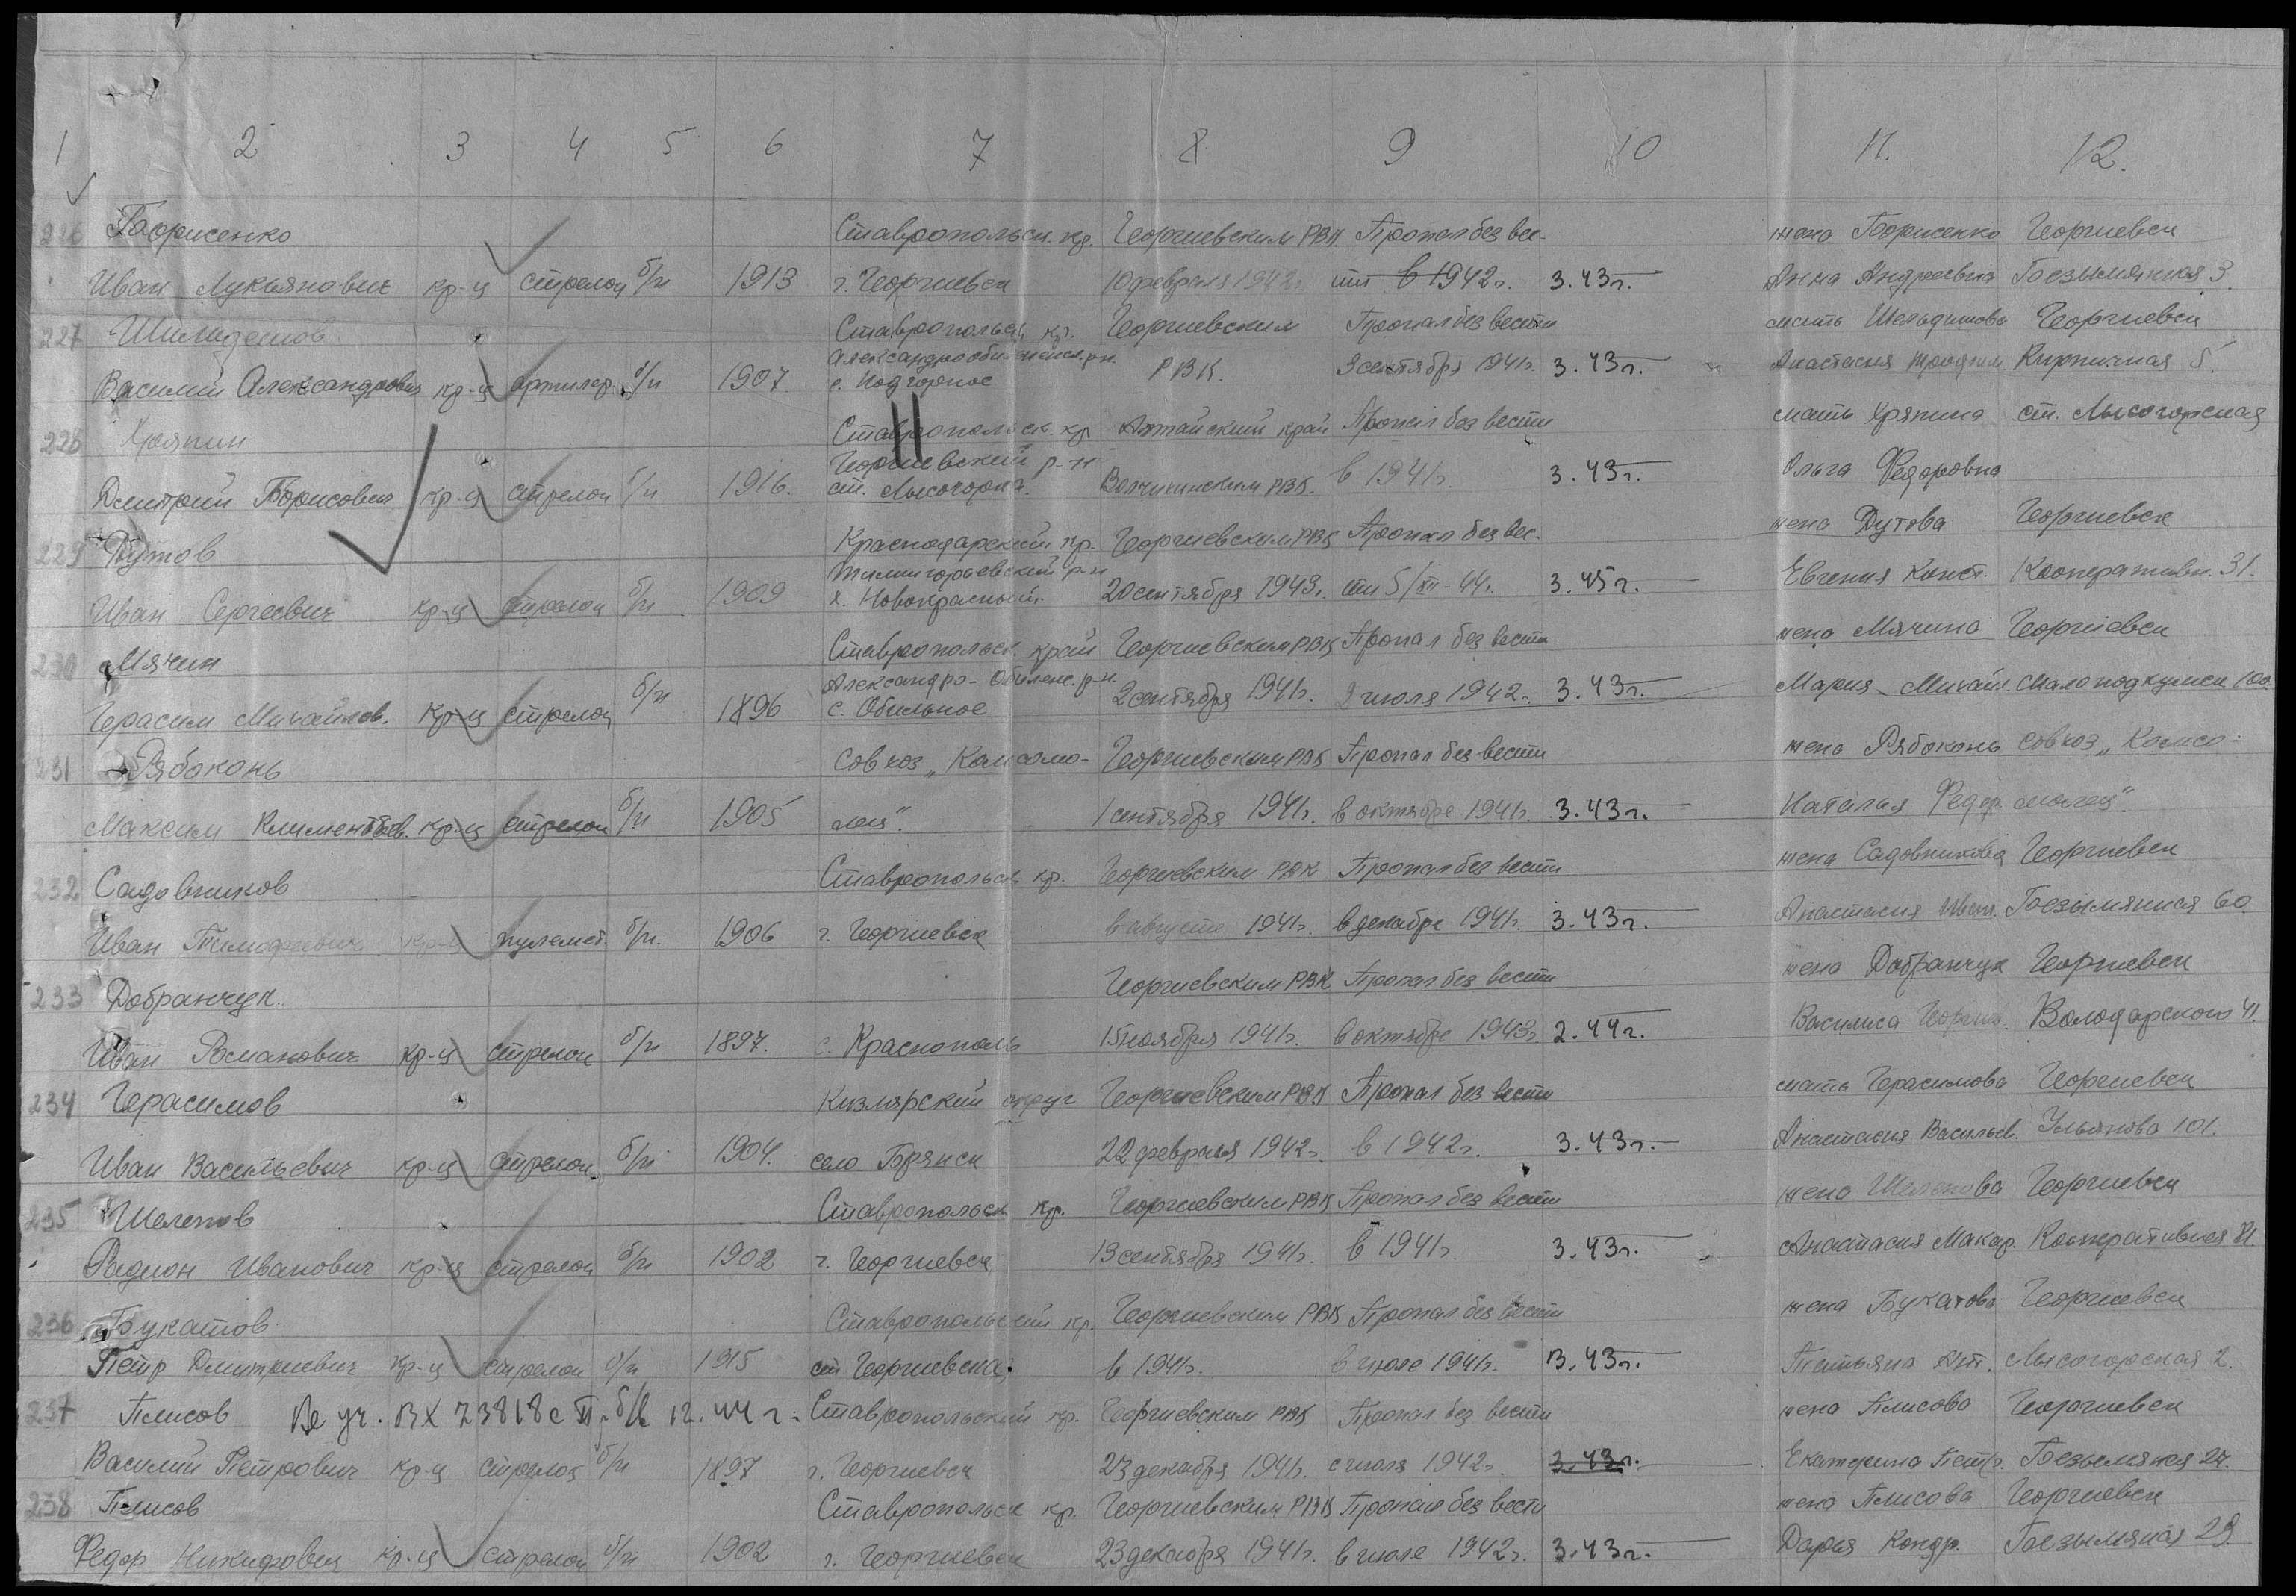 1 2 3 4 5 6 7 8 9 10 11. 12.
226 Борисенко Ставропольск. кр. Георгиевским РВК Пропал без вес- жена Борисенко Георгиевск
Иван Лукьянович кр-ц стрелок б/п 1913 г. Георгиевск 10 февраля 1942г. ти в 1942г. 3.43г. Анна Андреевна Безымянная 3.
227 Ставропольск. кр. Георгиевским Пропал без вести мать Георгиевск
Александрообиленск. р-н.
Василий Александрович кр-ц артилер. б/п 1907 с. Подгорное РВК. 3 сентября 1941г. 3.43г. Анастасия Кирпичная 5.
228 Хряпин Ставропольск. кр. Алтайский край Пропал без вести мать Хряпина ст. Лысогорская
Георгиевский р-н
Дмитрий Борисович кр-ц стрелок б/п 1916. ст. Лысогорск. Волчихинским РВК. в 1941г. 3.43г. Ольга Федоровна
229 Дутов Краснодарский кр. Георгиевским РВК Пропал без вес. жена Дутова Георгиевск
р-н
Иван Сергеевич кр-ц стрелок б/п 1909 х. Новокрасный. 20 сентября 1943г. ти 5/XII-44г. 3.45г. Евгения Конст. Кооперативн. 31.
230 Мячин Ставропольск. край Георгиевским РВК Пропал без вести жена Мячина Георгиевск
Александро-Обиленс. р-н.
Герасим Михайлов. кр-ц стрелок б/п 1896 с. Обильное 2 сентября 1941г. 2 июля 1942г. 3.43г. Мария Михайл. Малоподкумск 100.
231 Рябоконь Совхоз „Комсомо- Георгиевским РВК Пропал без вести жена Рябоконь совхоз „Комсо-
Максим Климентьев. кр-ц стрелок б/п 1905 лец". 1 сентября 1941г. в октябре 1941г. 3.43г. Наталья Федор. молец".
232 Садовников Ставропольск. кр. Георгиевским РВК Пропал без вести жена Садовникова Георгиевск
Иван Тимофеевич кр-ц пулемет. б/п. 1906 г. Георгиевск в августе 1941г. в декабре 1941г. 3.43г. Анастасия Иван. Безымянная 60.
233 Добранчук. Георгиевским РВК Пропал без вести жена Добранчук Георгиевск
Иван Романович кр-ц стрелок б/п 1897. с. Краснополь 15 ноября 1941г. в октябре 1943г. 2.44г. Василиса Георгие. Володарского 41.
234 Герасимов Кизлярский округ Георгиевским РВК Пропал без вести мать Герасимова Георгиевск
Иван Васильевич кр-ц стрелок б/п 1904. село Брянск 22 февраля 1942г. в 1942г. 3.43г. Анастасия Васильев. Ульянова 101.
235 Шелепов Ставропольск. кр. Георгиевским РВК Пропал без вести жена Шелепова Георгиевск
Радион Иванович кр-ц стрелок б/п 1902 г. Георгиевск 13 сентября 1941г. в 1941г. 3.43г. Анастасия Макар. Кооперативная
236 Букатов Ставропольский кр. Георгиевским РВК Пропал без вести жена Букатова Георгиевск
Петр Дмитриевич кр-ц стрелок б/п 1915 ст. Георгиевская в 1941г. в июле 1941г. 3.43г. Татьяна Лысогорская 2.
237 Плисов Не уч. ВХ 73818с 12.44г. Ставропольский кр. Георгиевским РВК Пропал без вести жена Плисова Георгиевск
Василий Петрович кр-ц стрелок б/п 1897 г. Георгиевск 23 декабря 1941г. с июля 1942г. 3.43г. Екатерина Петр. Безымяная 27.
238 Плисов Ставропольск. кр. Георгиевским РВК Пропал без вести жена Плисова Георгиевск
Федор Никифович кр-ц стрелок б/п 1902 г. Георгиевск 23 декабря 1941г. в июле 1942г. 3.43г. Дарья Кондр. Безымяная 29.